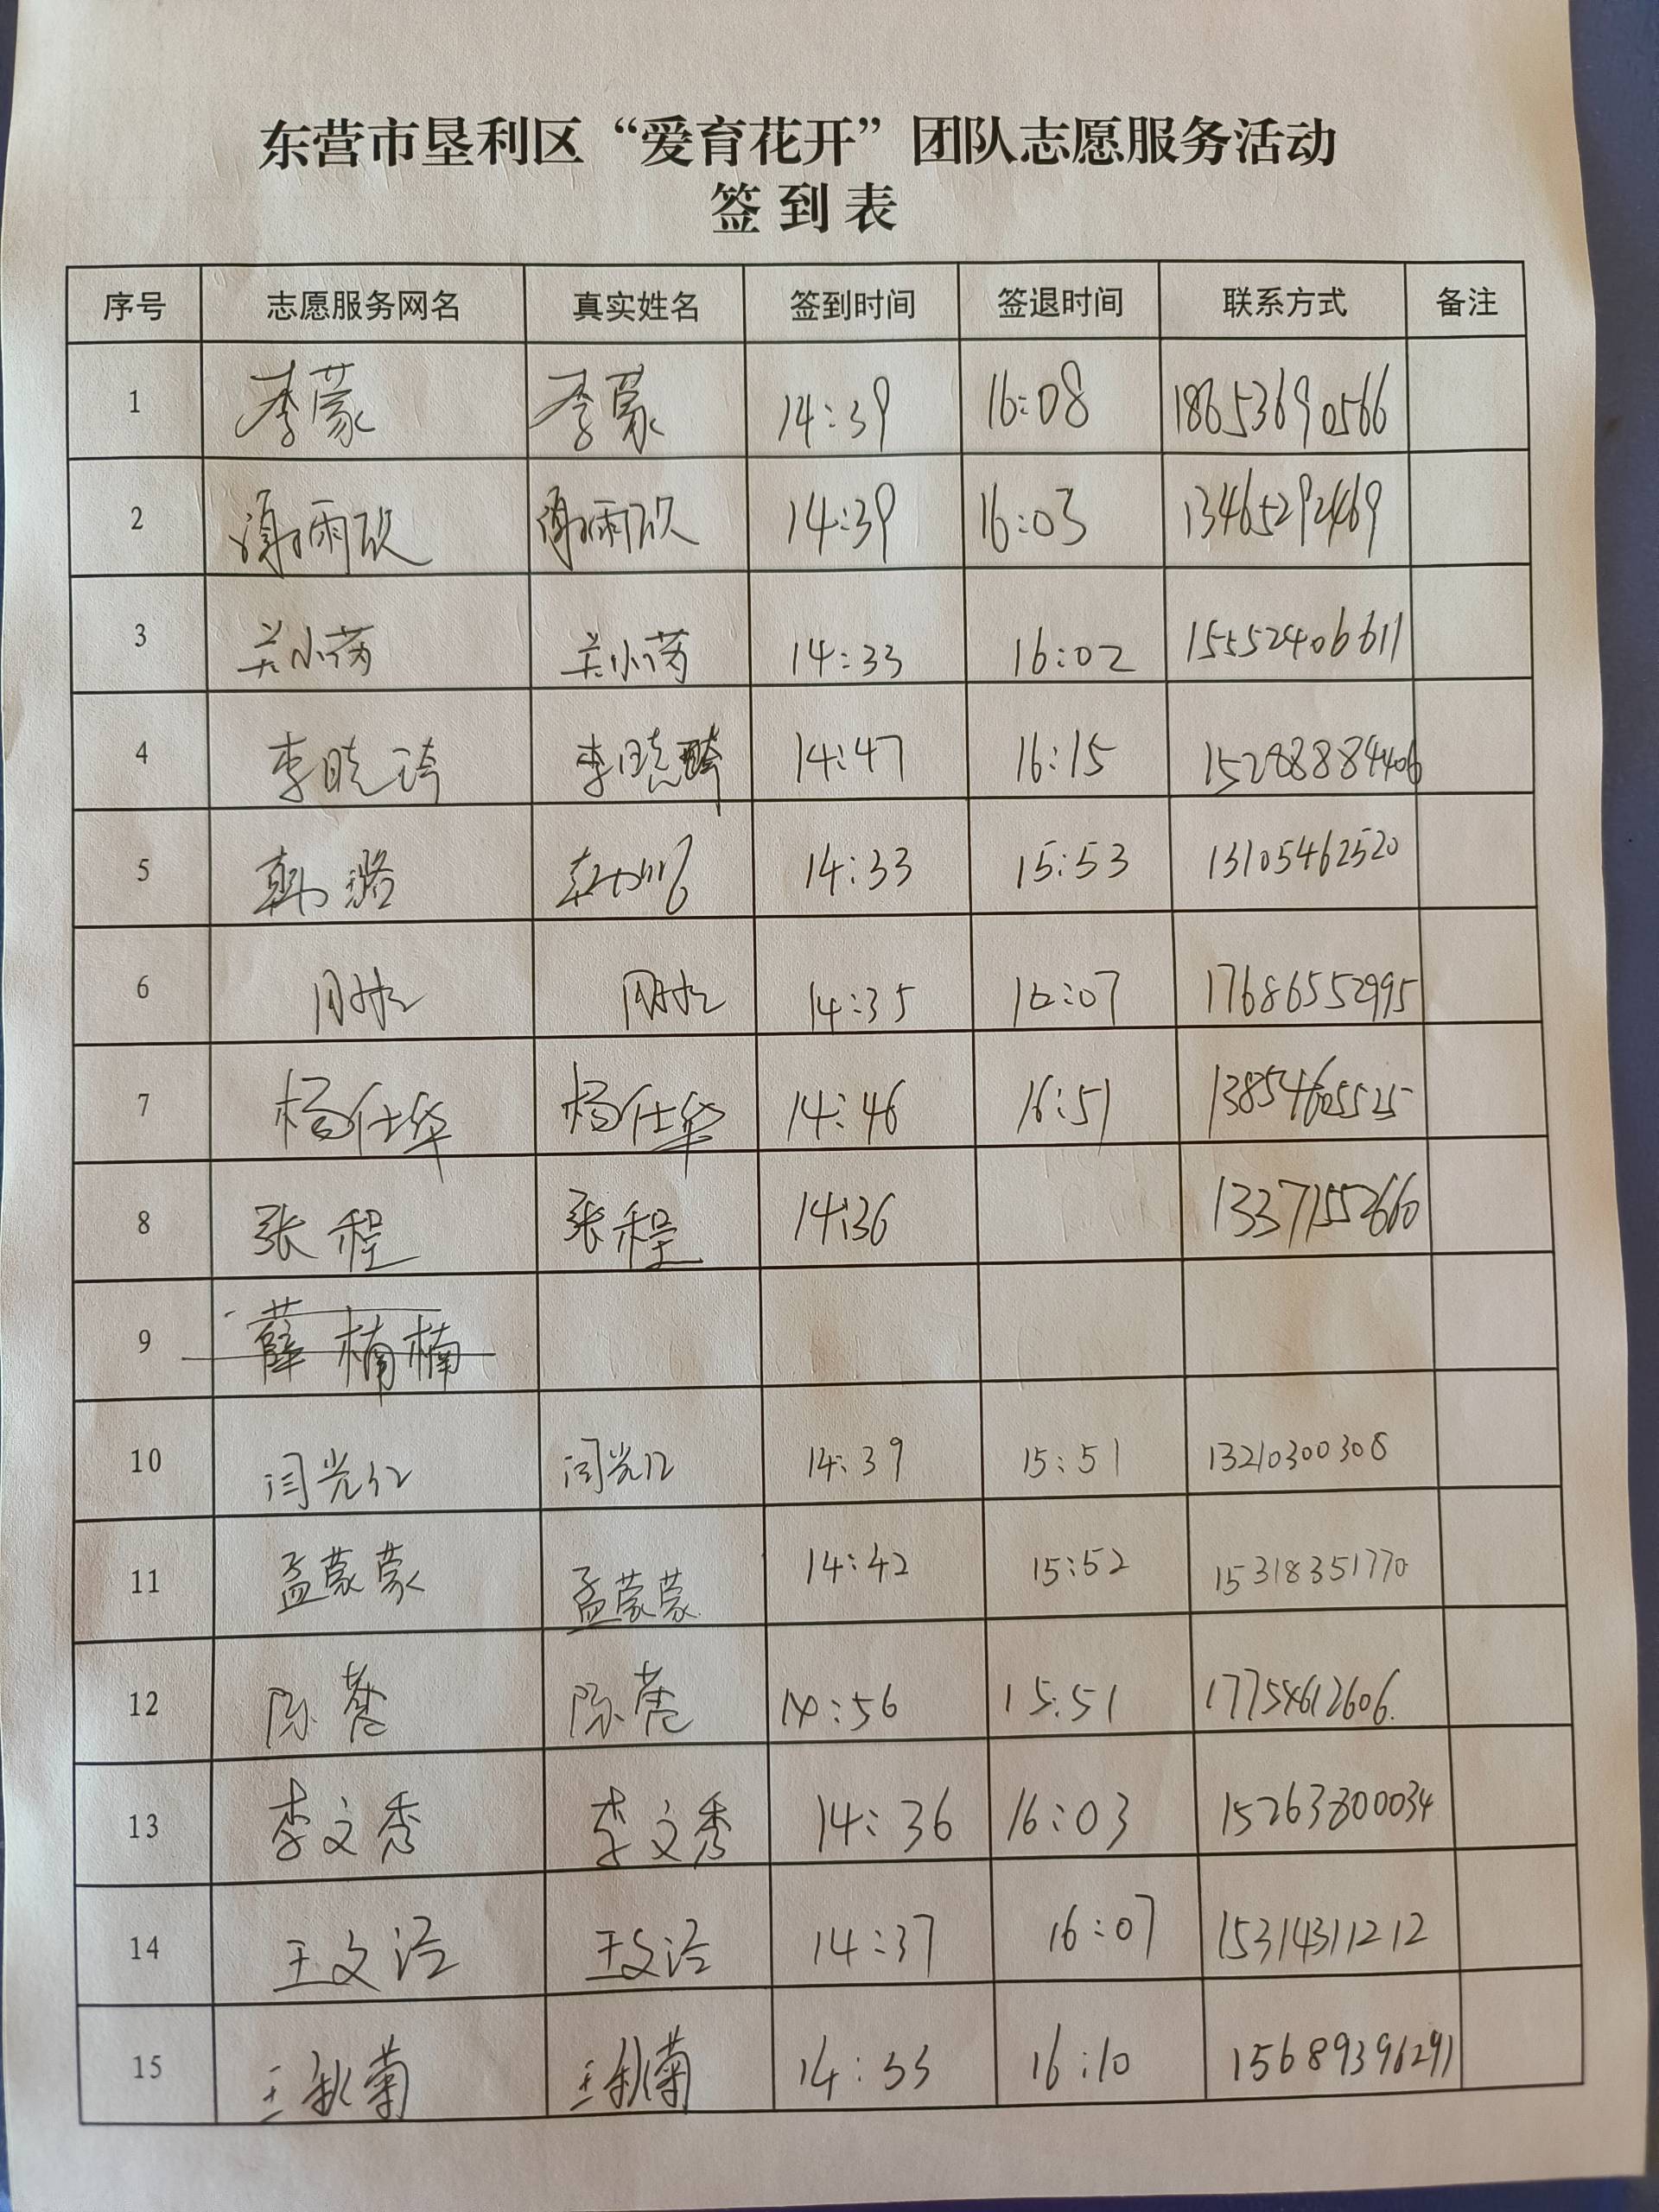 东营市垦利区“爱育花开”团队志愿服务活动
签到表
序号 志愿服务网名 真实姓名 签到时间 签退时间 联系方式 备注
1 李蒙 李蒙 14:39 16:08 18653690566
2 谢雨欣 谢雨欣 14:39 16:03 13465292469
3 关小芮 关小芮 14:33 16:02 15552406611
4 李晓琦 李晓琦 14:47 16:15 15288884406
5 韩璐 14:33 15:53 13105462520
6 14:35 16:07 17686552995
7 杨仕华 杨仕华 14:46 16:51 13854605525
8 张程 张程 14:36
9 薛楠楠
10 闫光红 闫光红 14:39 15:51 13210300308
11 孟蒙蒙 孟蒙蒙 14:42 15:52 15318351770
12 陈 陈 14:56 15:51 17754612606.
13 李文秀 李文秀 14:36 16:03 15263800034
14 王文泾 王文泾 14:37 16:07 15314311212
15 王秋菊 王秋菊 14:33 16:10 15689396291